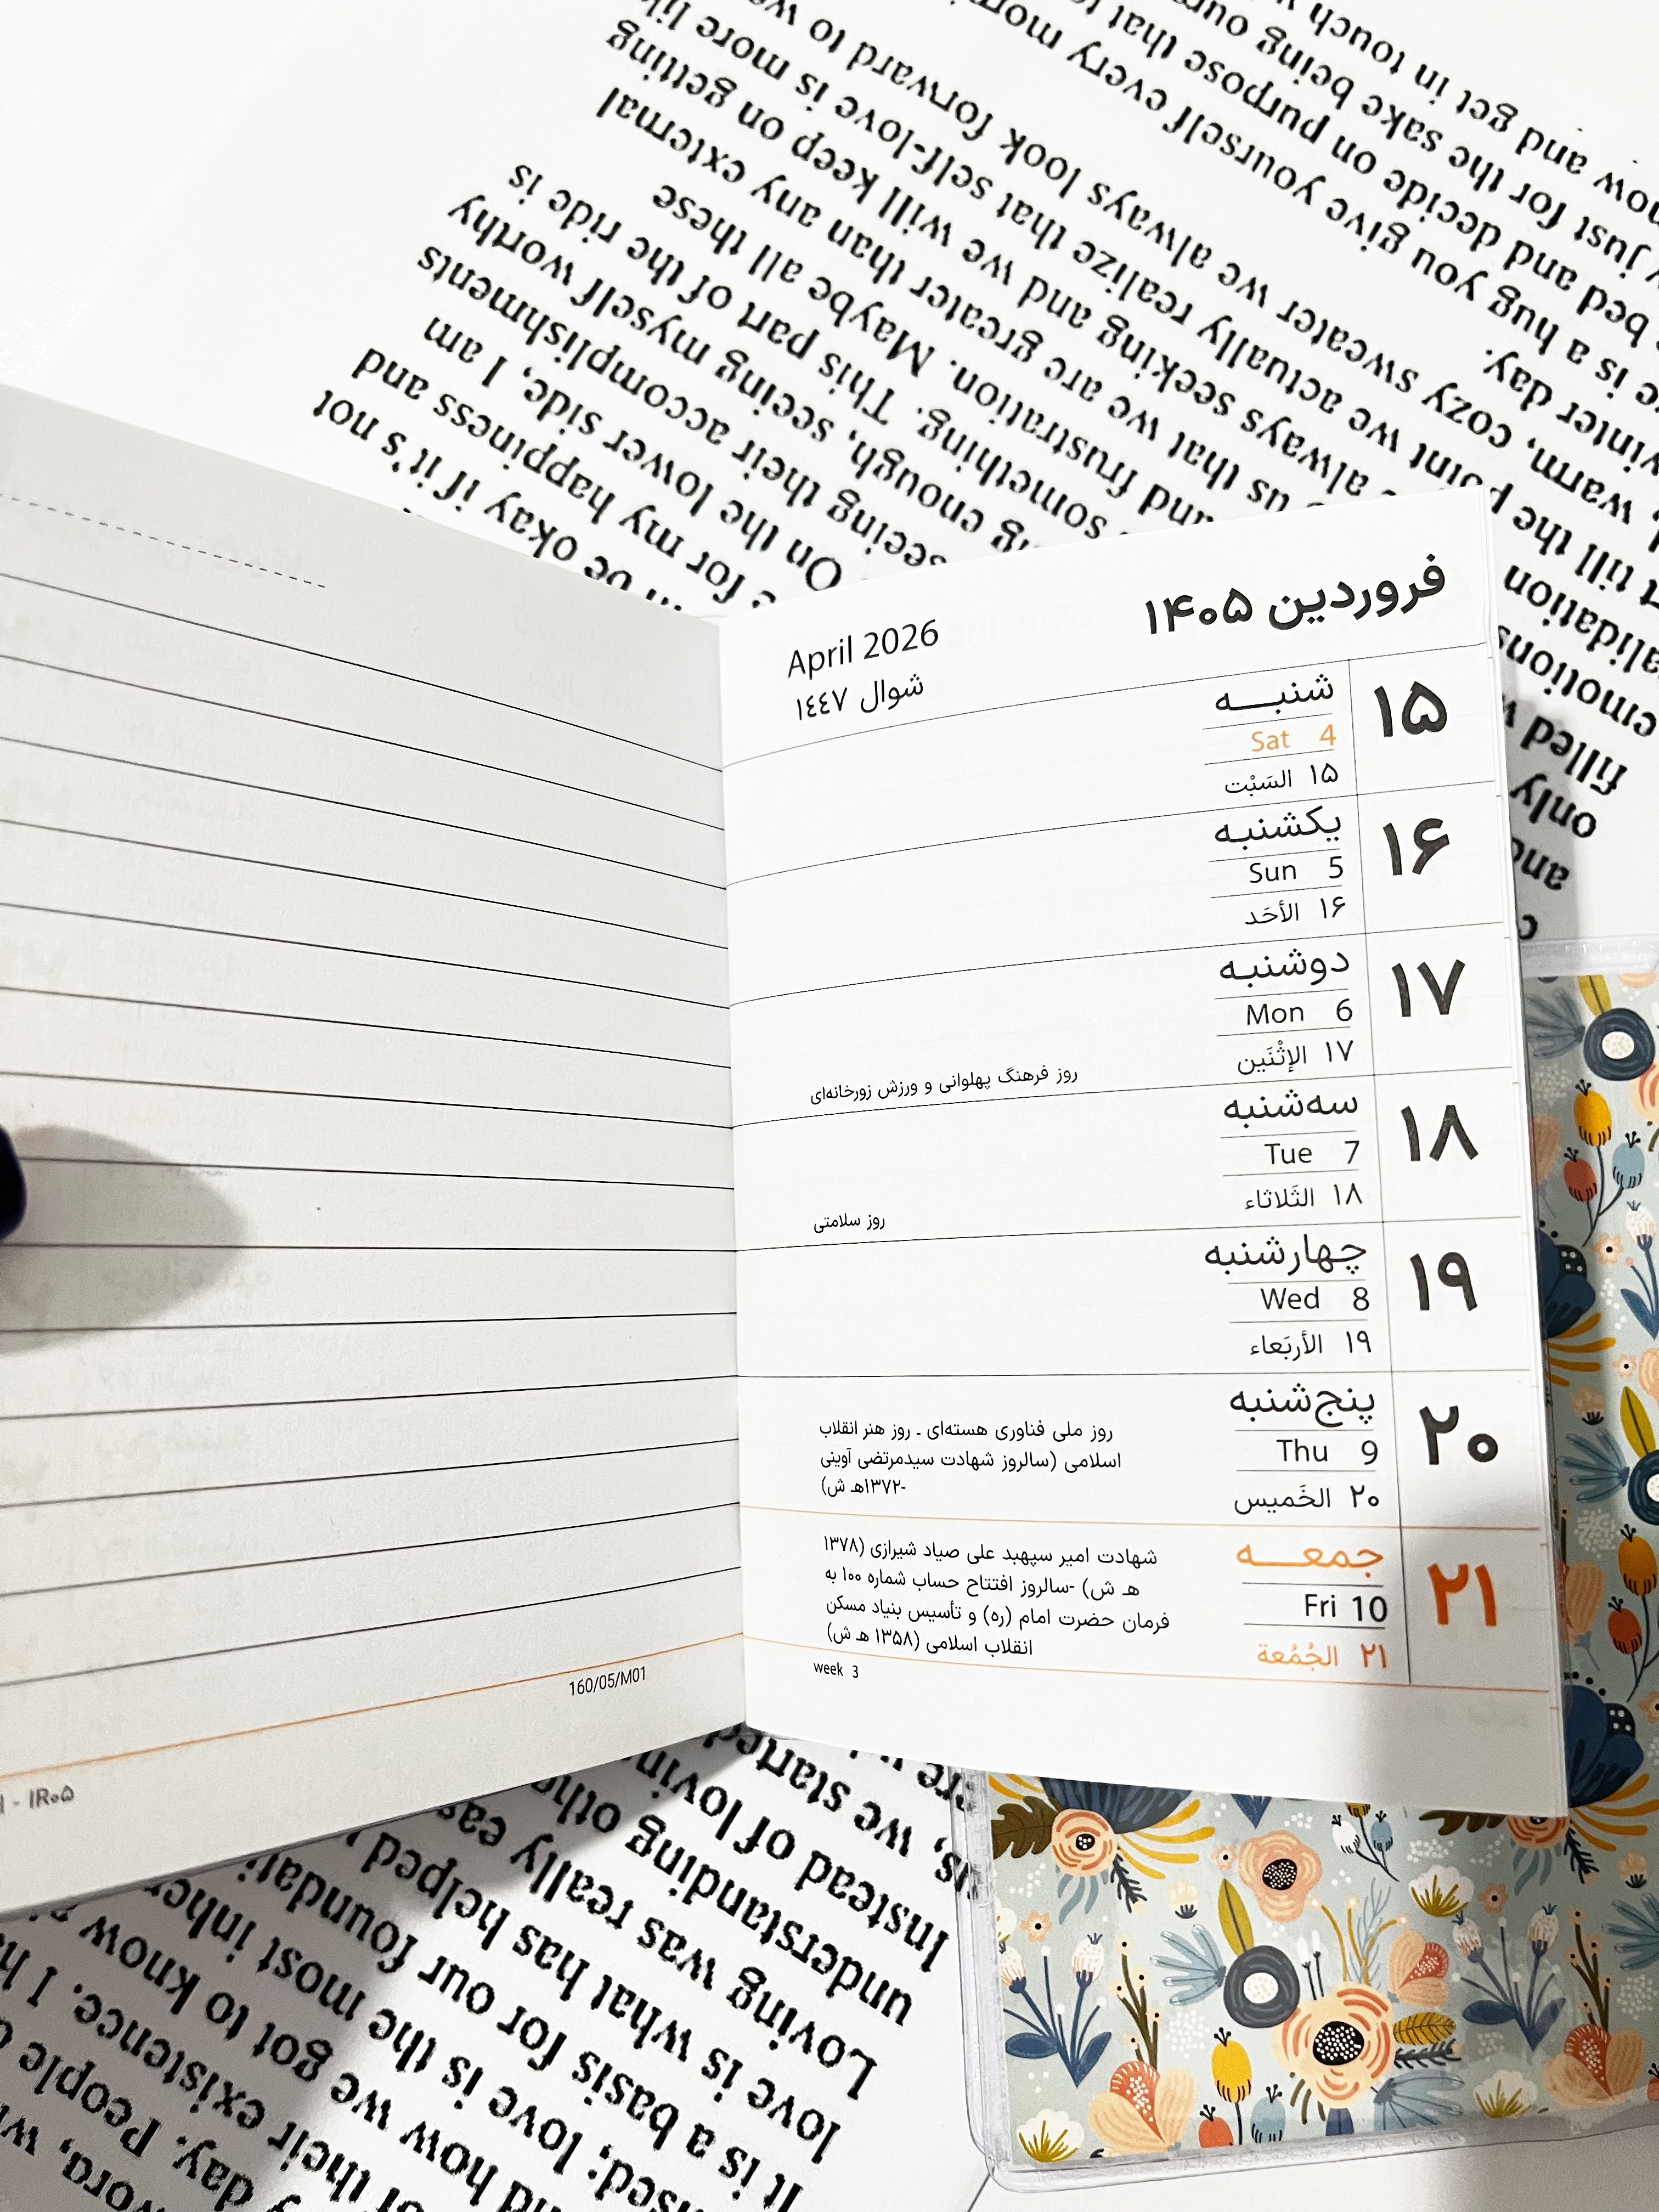 فروردین ۱۴۰۵
April 2026
شوال ١٤٤٧
۱۵
شنبـــه
Sat 4
۱۵ السَبْت
۱۶
یکشنبه
Sun 5
۱۶ الأحَد
۱۷
دوشنبه
Mon 6
۱۷ الإثْنَین
روز فرهنگ پهلوانی و ورزش زورخانه‌ای
۱۸
سه‌شنبه
Tue 7
۱۸ الثَلاثاء
روز سلامتی
۱۹
چهارشنبه
Wed 8
۱۹ الأربَعاء
۲۰
پنج‌شنبه
Thu 9
۲۰ الخَمیس
روز ملی فناوری هسته‌ای ـ روز هنر انقلاب
اسلامی (سالروز شهادت سیدمرتضی آوینی
-۱۳۷۲هـ ش)
۲۱
جمعـــه
Fri 10
۲۱ الجُمُعة
شهادت امیر سپهبد علی صیاد شیرازی (۱۳۷۸
هـ ش) -سالروز افتتاح حساب شماره ۱۰۰ به
فرمان حضرت امام (ره) و تأسیس بنیاد مسکن
انقلاب اسلامی (۱۳۵۸ هـ ش)
week 3
160/05/M01
now and get in touch
just for the sake being our
bed and decide on purpose that
is a hug you give yourself every
day.
warm, cozy sweater we always look forward to
till the point we actually realize that self-love is more
always seeking and we will keep on getting
us that we are greater than any external
and frustration. Maybe all these
something. This part of the ride is
enough, seeing myself worthy
seeing their accomplishments
On the lower side, I am
for my happiness and
be okay if it's not
filled
only
we started
Instead of loving
understanding
Loving was really
love is what has helped
It is a basis for our
love is the most
and how we got to know
of their existence. I
day. People